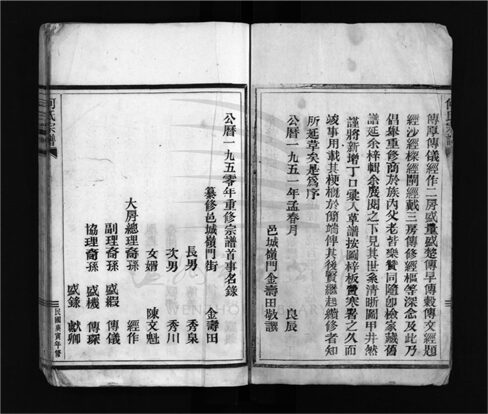 傳厚傳儀經作二房盛量盛楚傳早傳毅傳文經題
經沙經樑經開經戴三房傳修經樞等深念及此乃
倡舉重修商於族內父老皆樂贊同隨卽檢家藏舊
譜延余梓輯余廣閱之下見其世系清晰圖甲井然
謹將新增丁口彙入草譜按圖梓板嘗寒暑之久而
竣事用載其梗槪於簡端俾其後賢繼起續修者知
所延草矣是爲序
公曆一九五一年孟春月
良辰
邑城嶺門金壽田敬讓
公曆一九五零年重修宗譜首事名錄
纂修邑城嶺門街 金壽田
長男 秀泉
次男 秀川
女婿 陳文魁
大房總理裔孫 經作
副理裔孫 盛縀 傳儀
協理裔孫 盛機 傳琛
盛錄 獻卿
何氏宗譜
民國庚寅年督